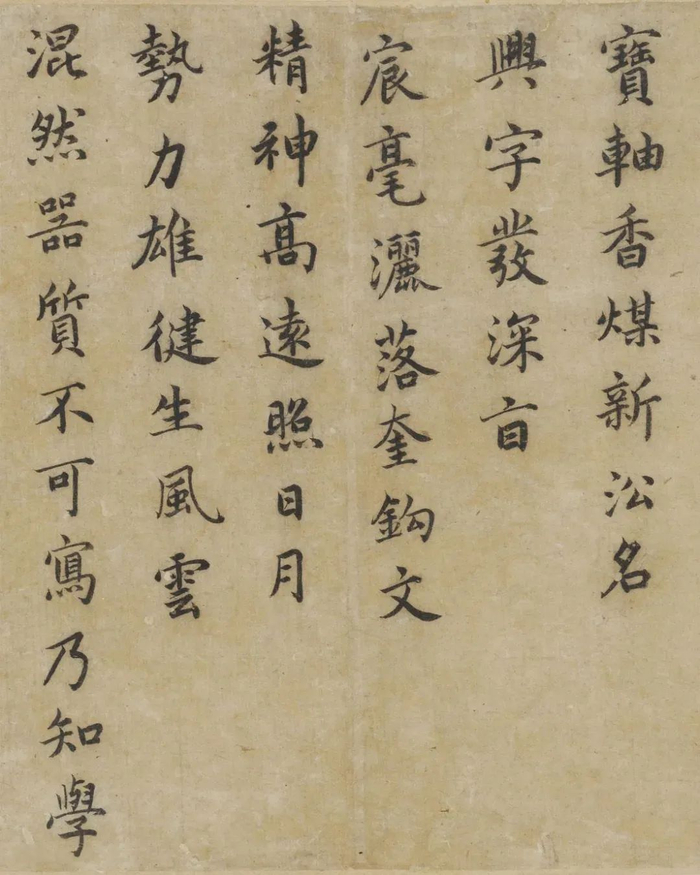 寶軸香煤新㳂名
興字發深㫖
宸毫灑落奎鈎文
精神髙遠照日月
勢力雄徤生風雲
混然噐質不可寫乃知學